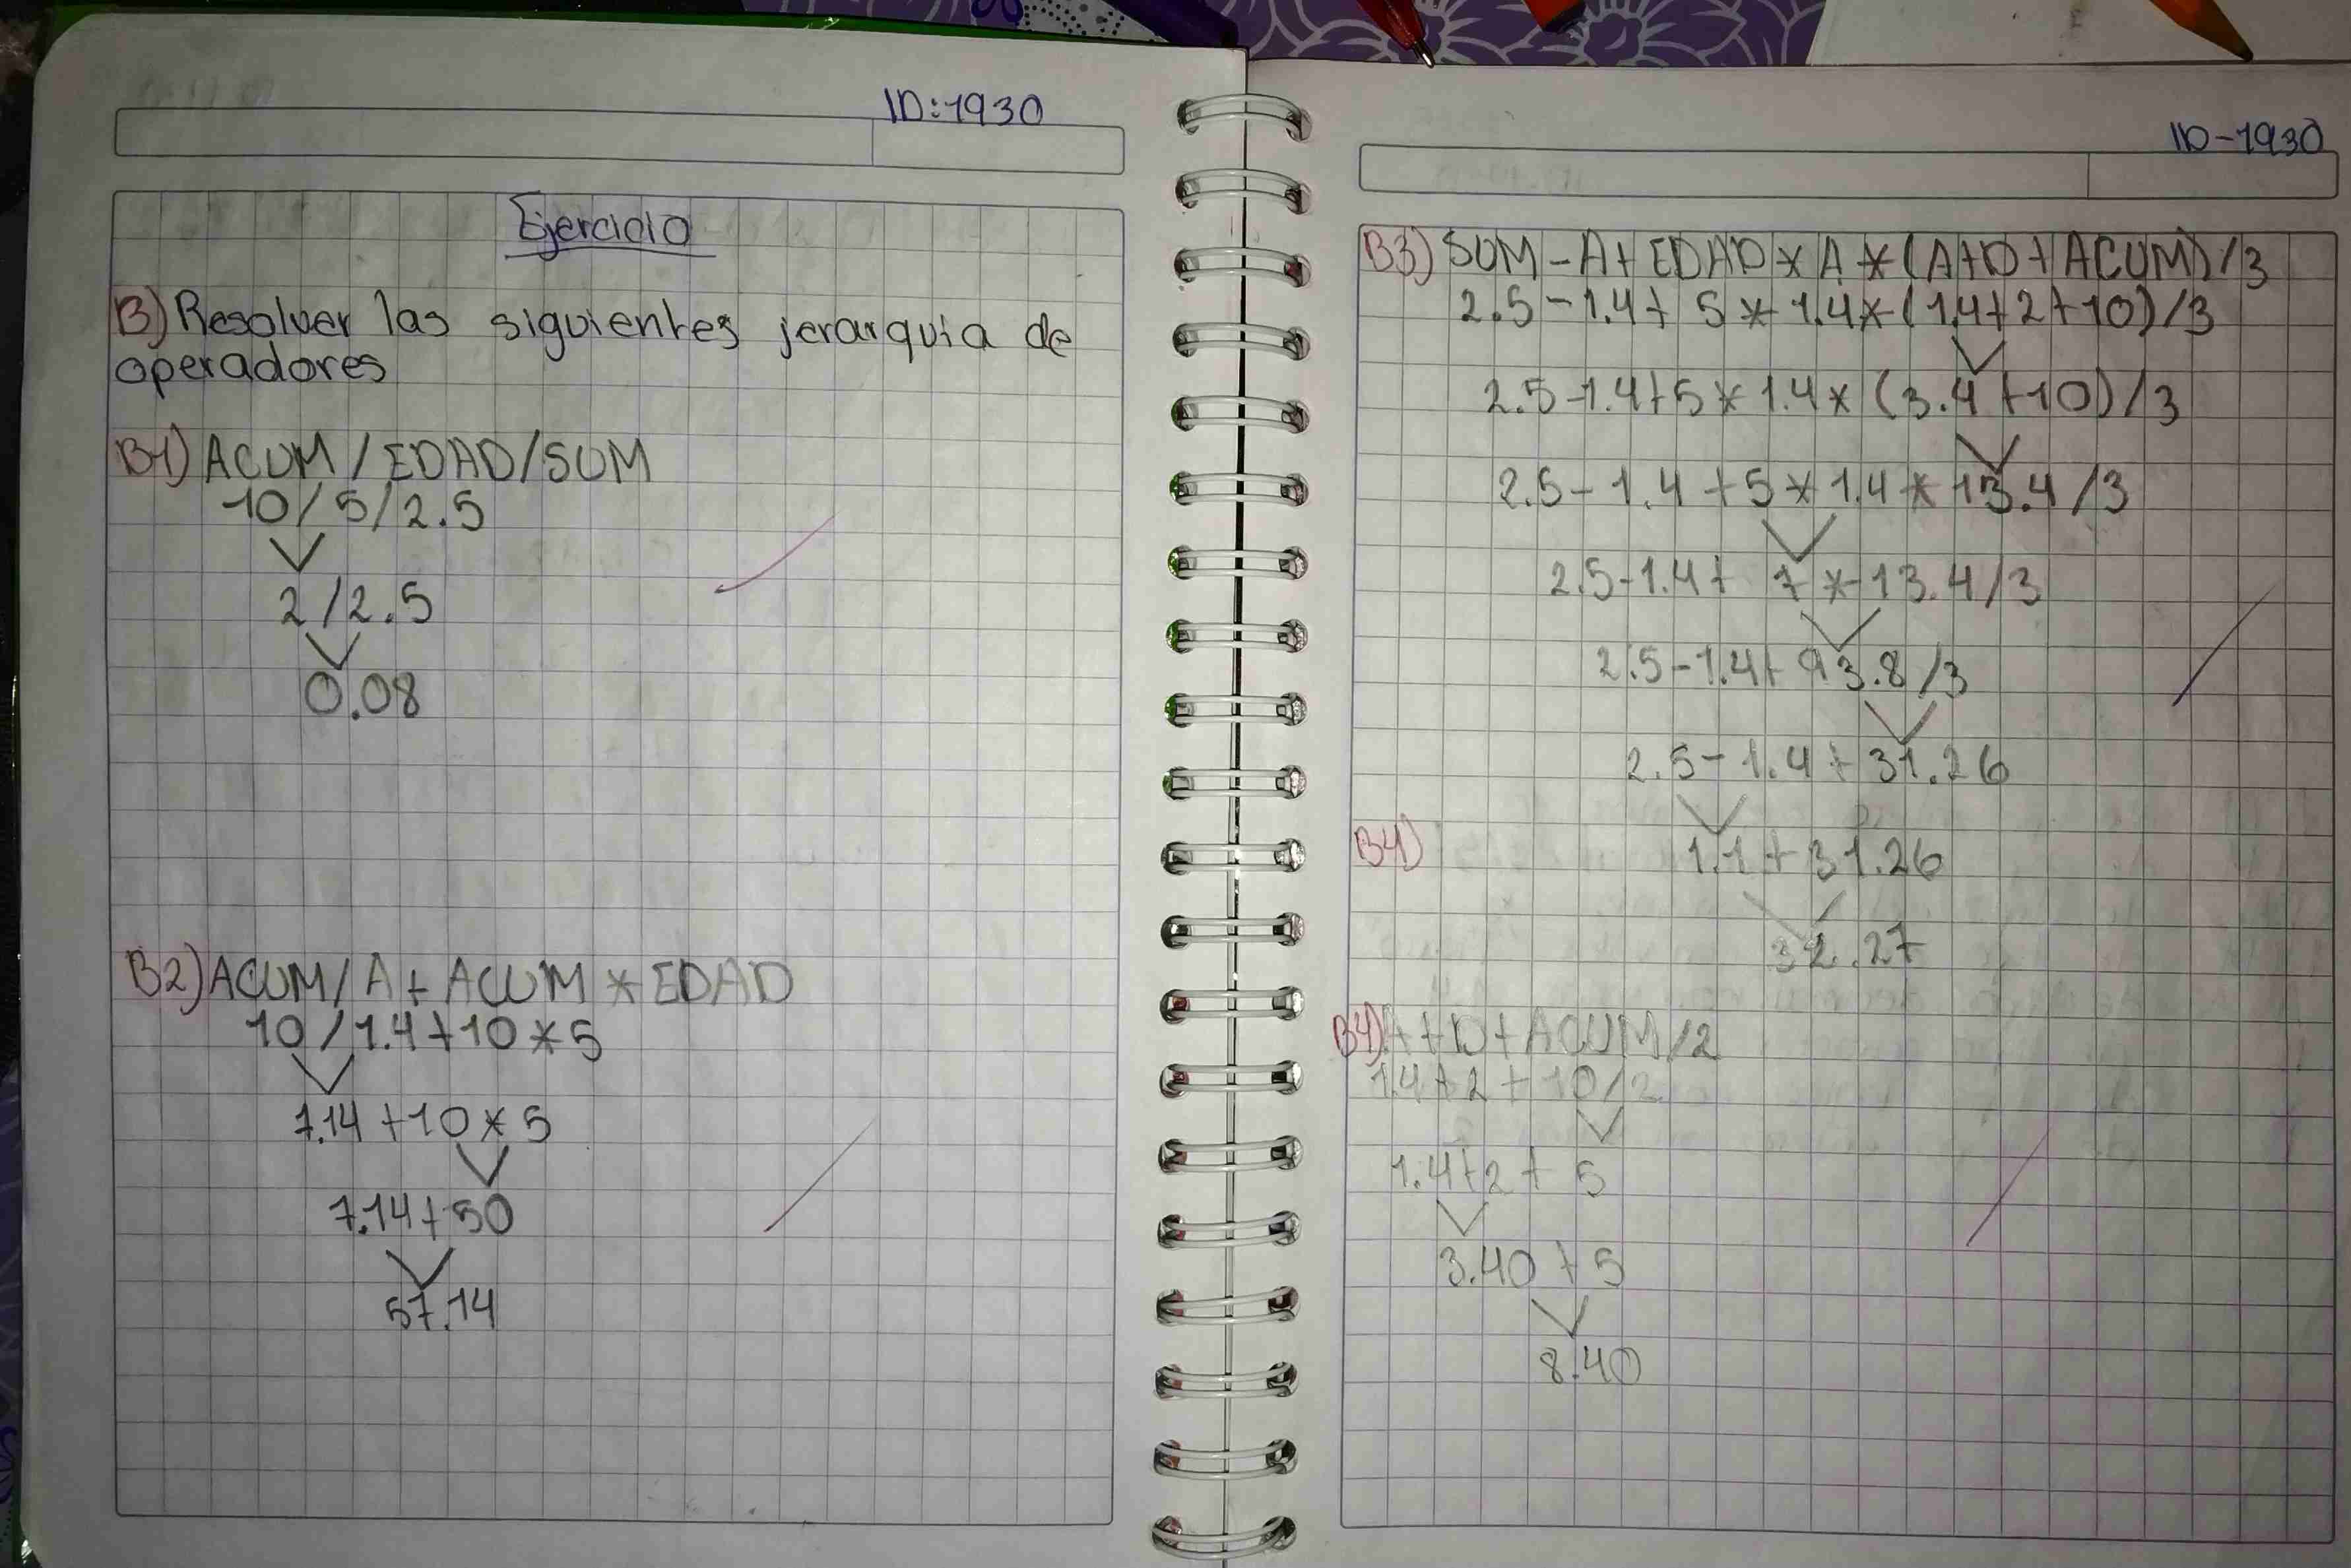 ID:1930
Ejercicio
B) Resolver las siguientes jerarquia de
operadores
B1) ACUM / EDAD/SUM
10/5/2.5
2/2.5
0.08
B2) ACUM/A+ ACUM * EDAD
10/1.4+10*5
7.14+10*5
7.14+50
57.14
ID-1930
B3) SUM-A+EDAD*A*(A+D+ACUM)/3
2.5-1.4+5*1.4*(1.4+2+10)/3
2.5-1.4+5*1.4*(3.4+10)/3
2.5-1.4+5*1.4*13.4/3
2.5-1.4+7*13.4/3
2.5-1.4+93.8/3
2.5-1.4+31.26
B4) 1.1+31.26
32.27
B4) A+D+ACUM/2
1.4+2+10/2
1.4+2+5
3.40+5
8.40